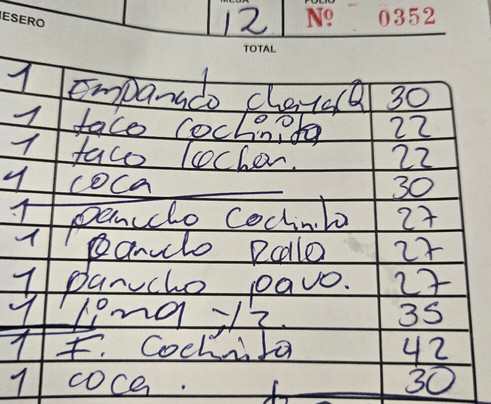 MESERO
MESA FOLIO
12 Nº 0352
TOTAL
1 Empanado chaya Q 30
1 taco cochinita 22
1 taco lechon. 22
1 coca 30
1 panucho Cochinita 27
1 panucho Pollo 27
1 panucho pavo. 27
1 lima 35
1 F. Cochinita 42
1 coca. 30